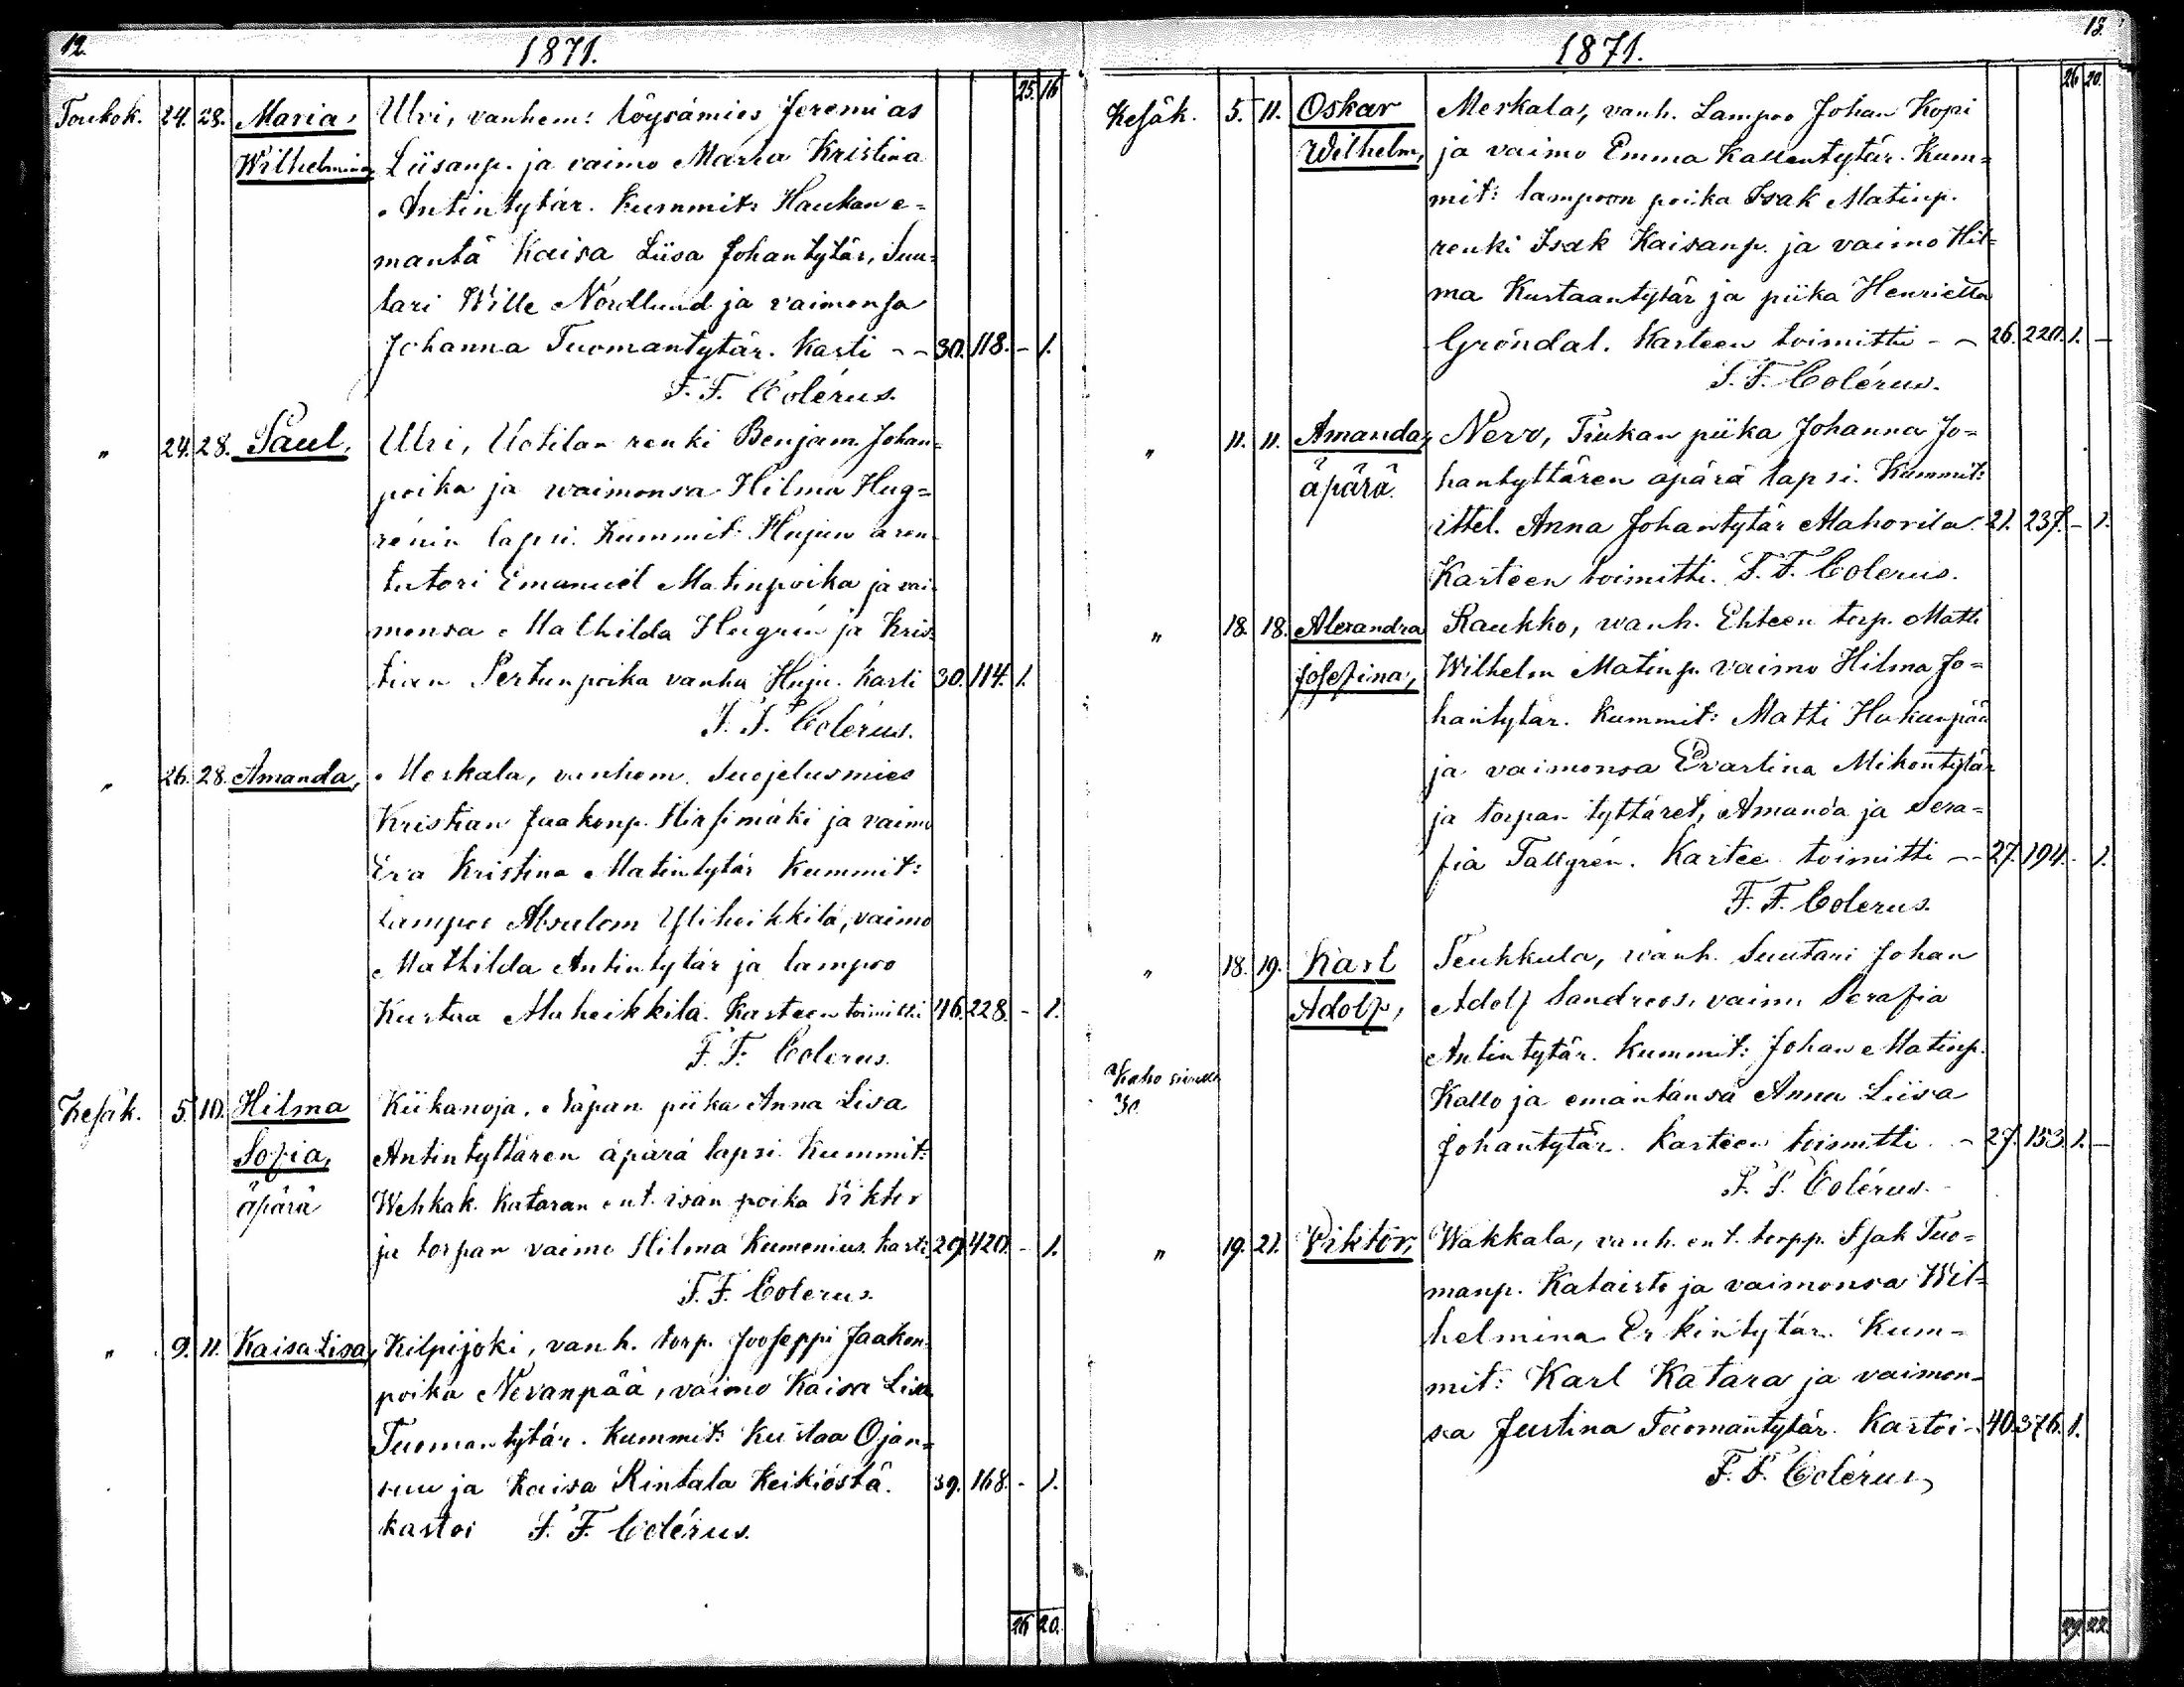 12.
1871.
25. 16
Toukok. 24. 28. Maria, Ulvi, vanhem: löysämies Jeremias
Wilhelmina, Liisanp. ja vaimo Maria Kristina
Antintytär. Kummit: Haukan e=
mäntä Kaisa Liisa Johantytär, Suu=
tari Wille Nordlund ja vaimonsa
Johanna Tuomantytär. Kasti -- 30. 118. - 1.
F. F. Colérus.
" 24. 28. Paul, Ulvi, Uotilan renki Benjam. Johan=
poika ja waimonsa Hilma Hug=
rénin lapsi. Kummit: Hujun aren
tatori Emanuel Matinpoika ja vai=
monsa Mathilda Hugrén ja Kris=
tian Pertunpoika vanha Huju. Kasti 30. 114. 1.
F. F. Colérus.
" 26. 28. Amanda, Meskala, vanhem. Suojelusmies
Kristian Jaakonp. Hirsimäki ja vaimo
Eva Kristina Matintytär Kummit:
Lampoo Absalom Yliheikkilä, vaimo
Mathilda Antintytär ja lampoo
Kustaa Alaheikkilä. Kasteen toimitti 46. 228. - 1.
F. F. Colerus.
Kesäk. 5. 10. Hilma Kiikanoja, piika Anna Lisa
Sofia, Antintyttären äpärä lapsi. Kummit:
äpärä Wehkak. Kataran ent. isän poika Viktor
ja torpan vaimo Hilma Kumenius. Kasti. 29. 420. - 1.
F. F. Colerus.
" 9. 11. Kaisa Lisa, Kilpijoki, vanh. torp. Jooseppi Jaakon
poika Nevanpää, vaimo Kaisa Lisa
Tuomantytär. Kummit: Kustaa Ojan=
suu ja Kaisa Rintala Keikiöstä. 39. 168. - 1.
kastoi F. F. Colérus.
26 20.
13.
1871.
26 20.
Kesäk. 5. 11. Oskar Meskala, vanh. Lampoo Johan Kopi
Wilhelm, ja vaimo Emma Kallentytär. Kum=
mit: lampoon poika Isak Matinp.
renki Isak Kaisanp. ja vaimo Hil=
ma Kustaantytär ja piika Henrietta
Gröndal. Kasteen toimitti -- 26. 220. 1. -
F. F. Colérus.
" 11. 11. Amanda, Nero, piika Johanna Jo=
äpärä. hantyttären äpärä lapsi. Kummit:
ittel. Anna Johantytär Mahovila 21. 237. - 1.
Kasteen toimitti. F. F. Colerus.
" 18. 18. Alexandra Raukko, wanh. Ehteen torp. Matti
Josefina, Wilhelm Matinp. vaimo Hilma Jo=
hantytär. Kummit: Matti Hukanpää
ja vaimonsa Evastina Mikontytär
ja torpan tyttäret, Amanda ja Sera=
fia Tallgrén. Kastee toimitti -- 27. 194. - 1.
F. F. Colerus.
" 18. 19. Karl Peuhkula, wanh. Suutari Johan
Adolf, Adolf Sandroos, vaimo Serafia
Antintytär. Kummit: Johan Matinp.
Katso sivulla
30.
Kallo ja emäntänsä Anna Liisa
Johantytär. Kasteen toimitti - 27. 153. 1. -
F. F. Colérus.
" 19. 21. Viktor, Wakkala, vanh. ent. torpp. Isak Tuo=
manp. Kataisto ja vaimonsa Wil=
helmina Erkintytär. Kum=
mit: Karl Katara ja vaimon=
sa Justina Tuomantytär. Kastoi - 40. 376. 1.
F. F. Colérus,
29. 22.